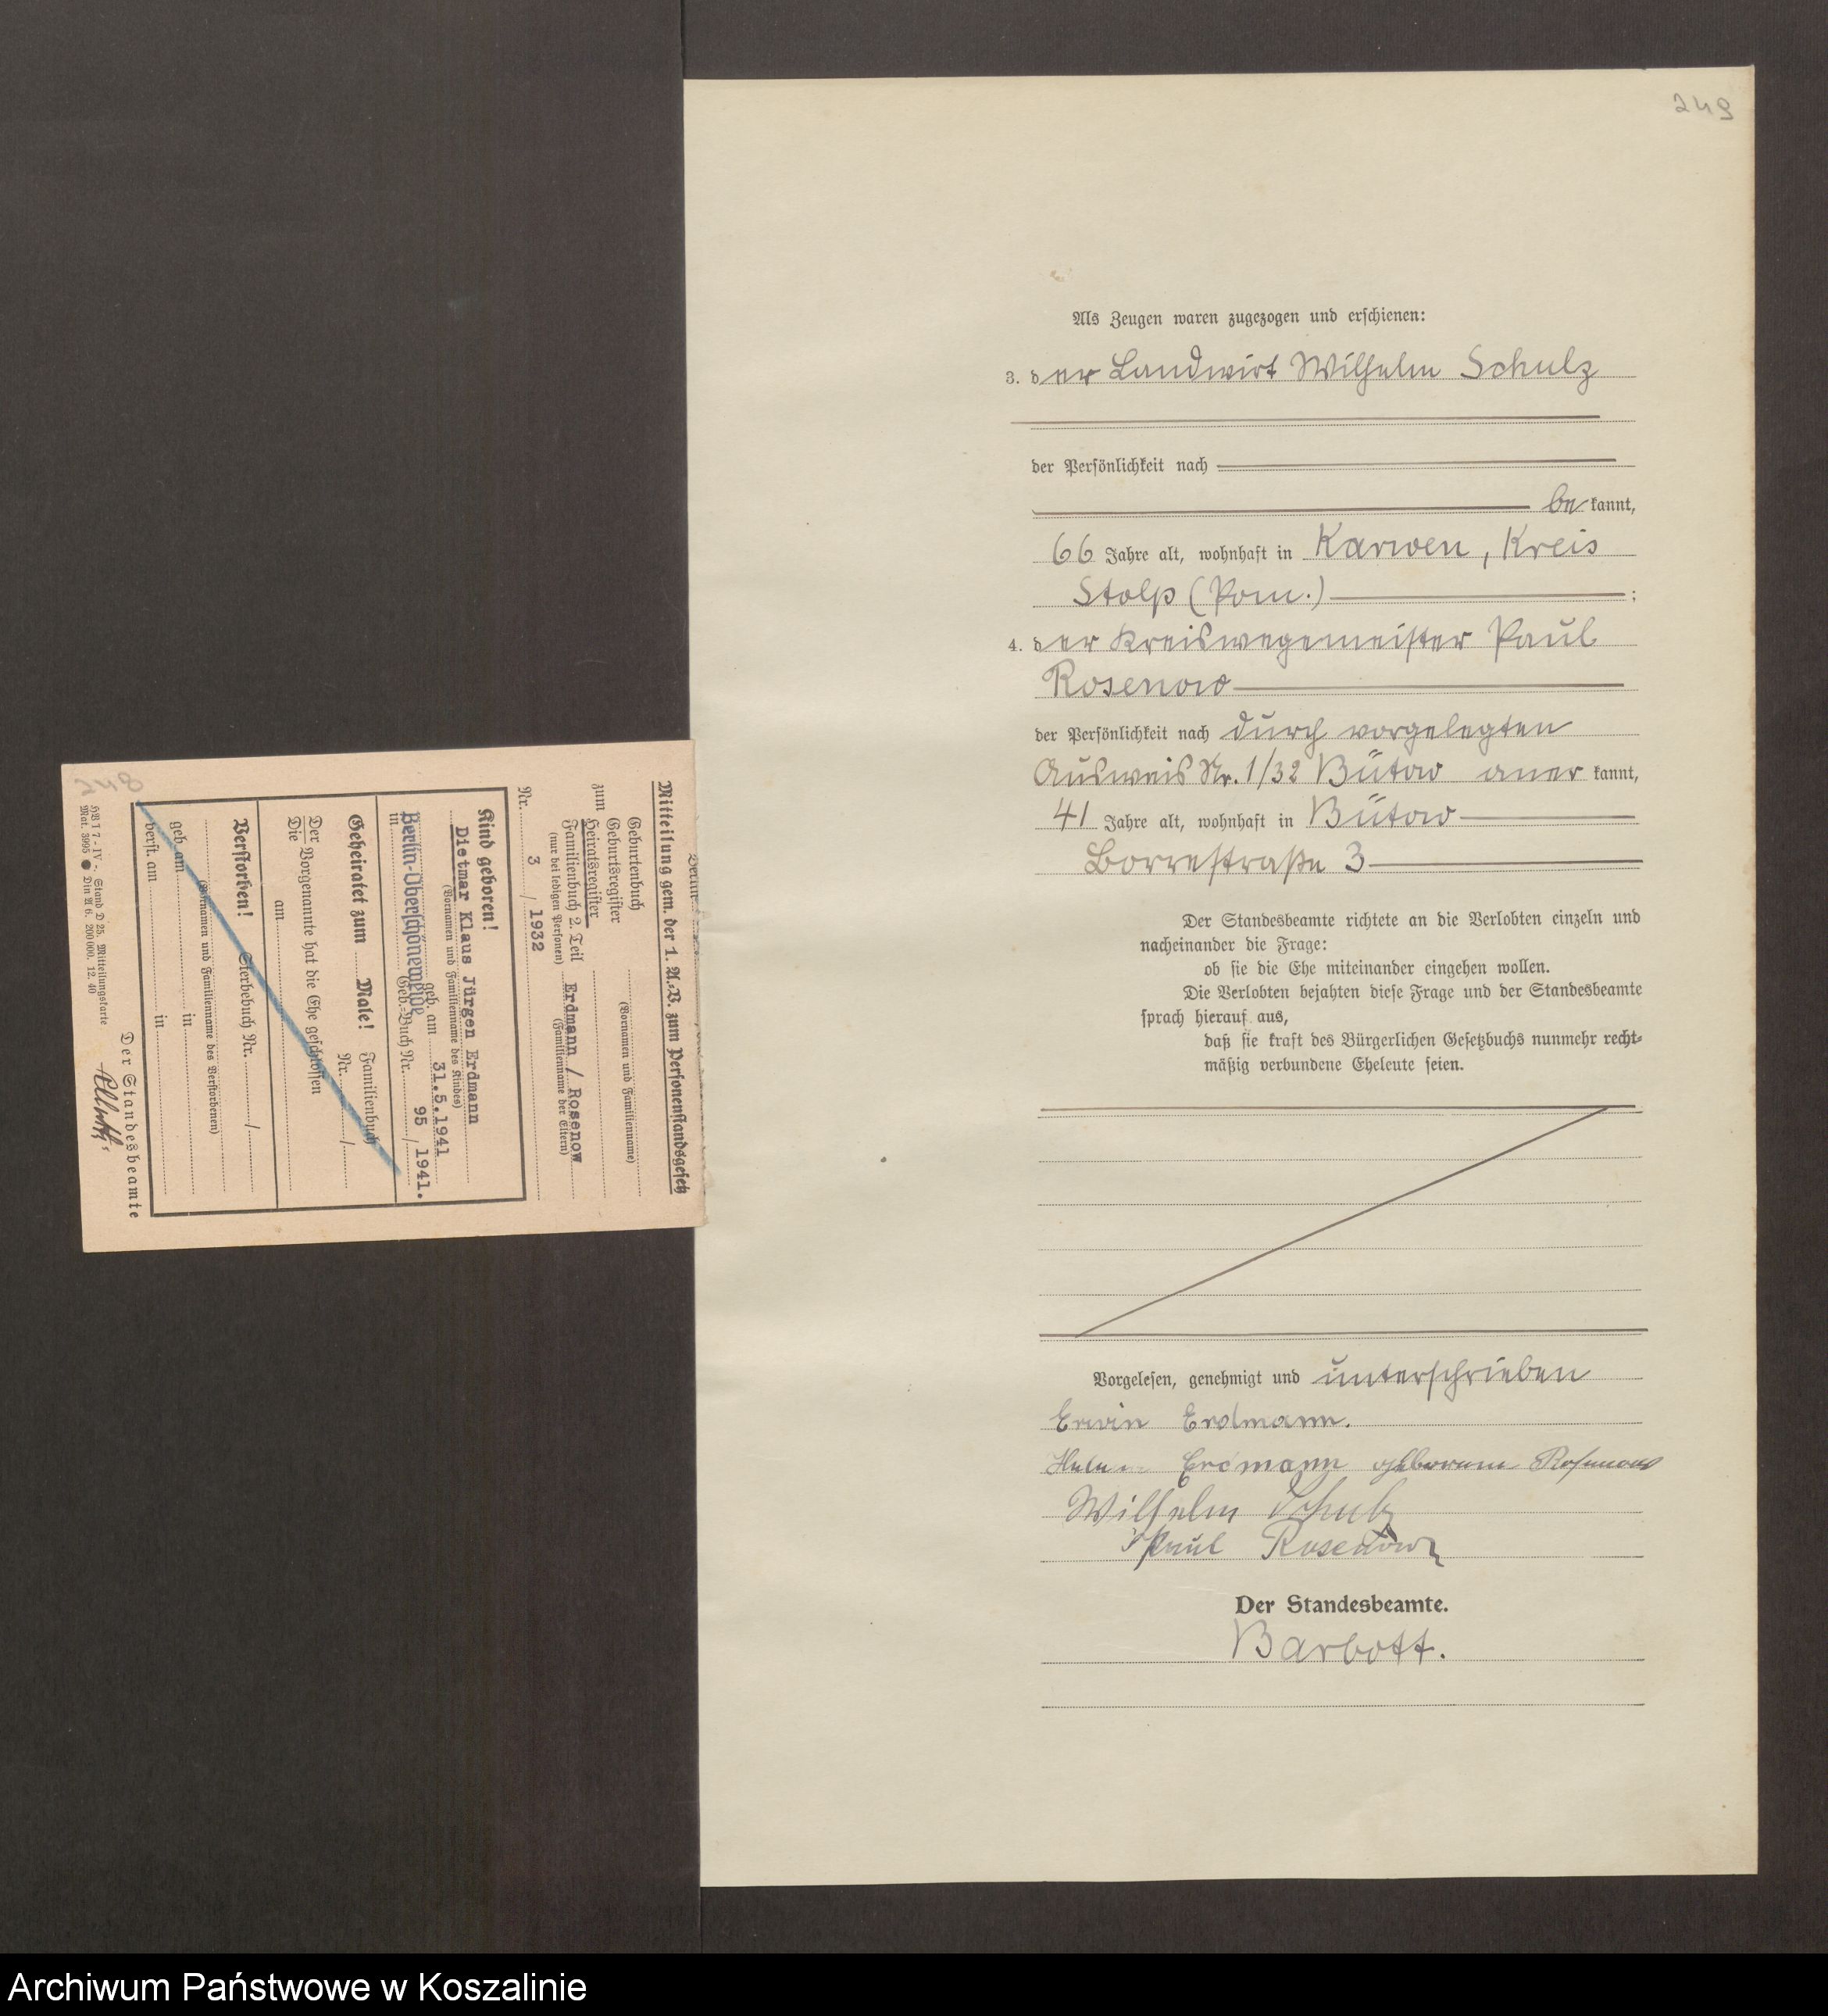 249
Als Zeugen waren zugezogen und erschienen:
3. der Landwirt Wilhelm Schulz
der Persönlichkeit nach
be kannt,
66 Jahre alt, wohnhaft in Karwen, Kreis
Stolp (Pom.) ;
4. der Kreiswegemeister Paul
Rosenow
der Persönlichkeit nach durch vorgelegten
Ausweis Nr. 1/32 Bütow aner kannt,
41 Jahre alt, wohnhaft in Bütow
Borrestraße 3
Der Standesbeamte richtete an die Verlobten einzeln und
nacheinander die Frage:
ob sie die Ehe miteinander eingehen wollen.
Die Verlobten bejahten diese Frage und der Standesbeamte
sprach hierauf aus,
daß sie kraft des Bürgerlichen Gesetzbuchs nunmehr recht-
mäßig verbundene Eheleute seien.
Vorgelesen, genehmigt und unterschrieben
Erwin Erdmann.
Helene Erdmann geborene Rosenow
Wilhelm Schulz
Paul Rosenow
Der Standesbeamte.
Barbott.
248
Mitteilung gem. der 1. A.-V. zum Personenstandsgesetz
Geburtenbuch
Geburtsregister (Vornamen und Familienname)
zum Heiratsregister
Familienbuch 2. Teil Erdmann / Rosenow
(nur bei ledigen Personen) (Familienname der Eltern)
Nr. 3 / 1932
Kind geboren!
Dietmar Klaus Jürgen Erdmann
(Vornamen und Familienname des Kindes)
geb. am 31.5.1941
in Berlin-Oberschöneweide Geb.-Buch Nr. 95 / 1941.
Geheiratet zum Male! Familienbuch
Nr. /
Der
Die Vorgenannte hat die Ehe geschlossen
am
Verstorben! Sterbebuch Nr. /
(Vornamen und Familienname des Verstorbenen)
geb. am in
verst. am in
Der Standesbeamte
HB I 7 - IV -, Stand D 25. Mitteilungskarte
Mat. 3995 ● Din A 6. 200 000. 12. 40
Archiwum Państwowe w Koszalinie